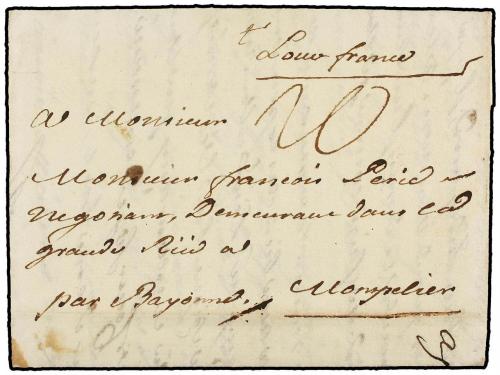 Pour france
a Monsieur
Monsieur francois Perié
negosiant, Demeurant dans La
grande Rüe a
par Bayonne. Monpelier